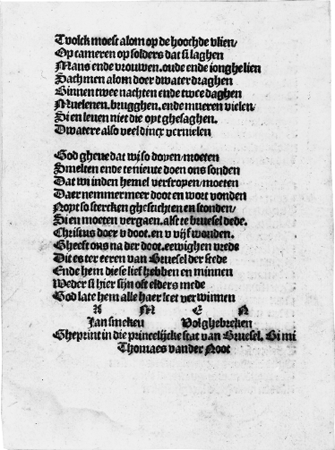 Tvolck moest alom op de hoochde vlien/
Op cameren op solders dat si laghen
Mans ende vrouwen. oude ende jonghe lien
Sachmen alom doer dwater draghen
Binnen twee nachten ende twee daghen
Muelenen. brugghen. ende mueren vielen/
Si en leuen niet die oyt ghesaghen.
Dwatere also veel dincx vernielen

God gheue dat wi so doyen/moeten
Smelten ende te nieute doen ons sonden
Dat wi inden hemel verfroyen/moeten
Daer nemmermeer doot en wort vonden
Noyt so stercken ghesichten en stonden/
Si en moeten vergaen. alst te bruesel dede.
Christus doer v doot. en v vijf wonden.
Gheeft ons na der doot. eewighen vrede
Dit es ter eeren van Bruesel der stede
Ende hem diese lief hebben en minnen
Weder si hier sijn oft elders mede
God late hem alle haer leet verwinnen
A M E N
Jan smeken Volgh
Gheprint in die princelijcke stat van Bruesel. Bi mi
Thomaes vander Noot